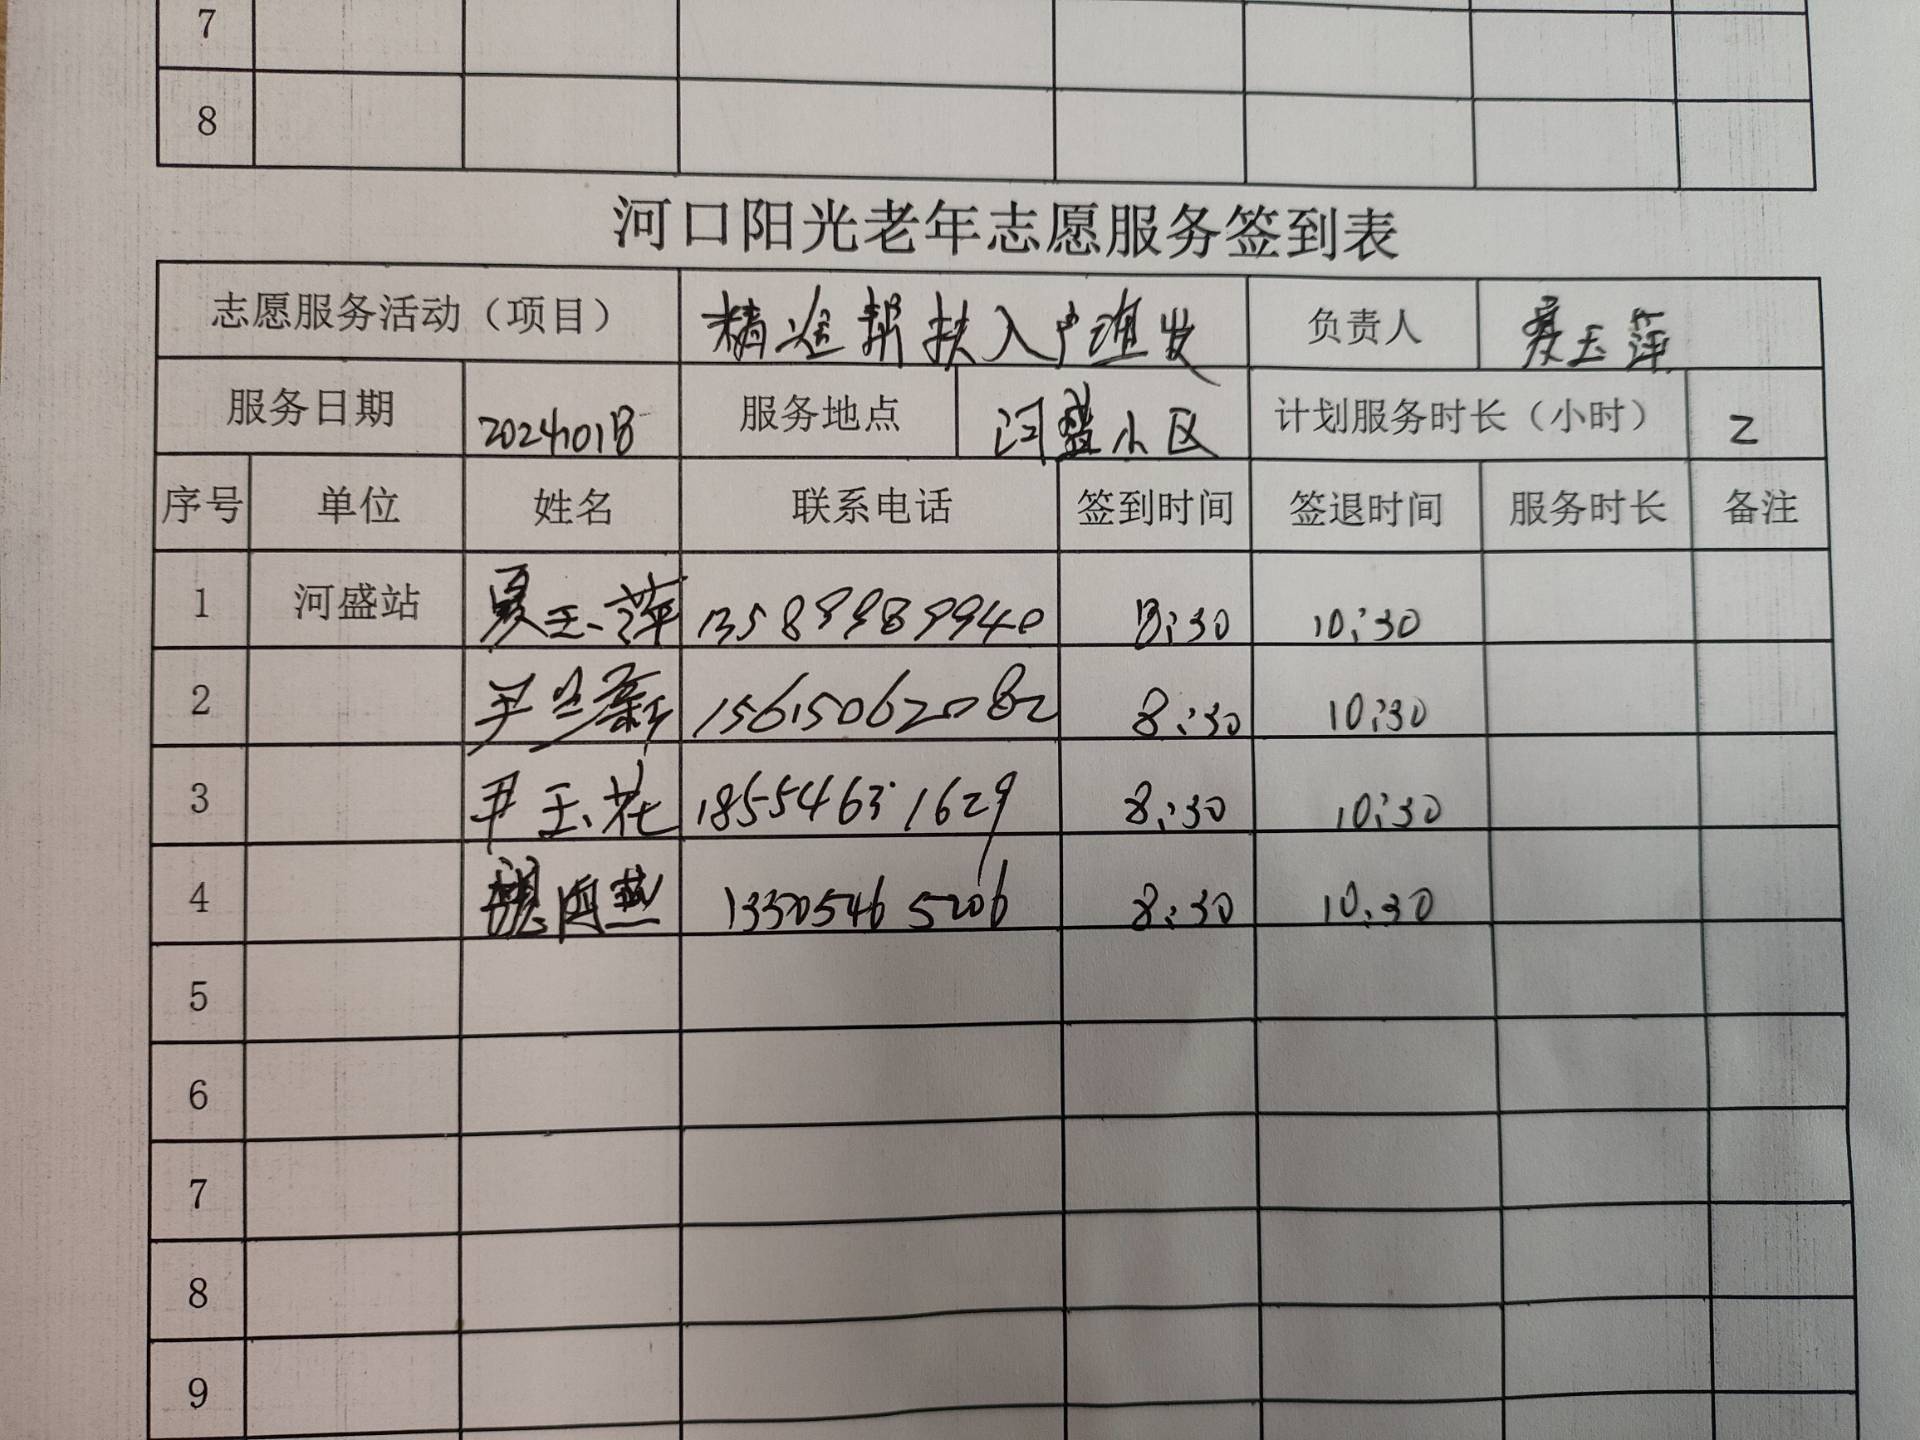 7
8
河口阳光老年志愿服务签到表
志愿服务活动（项目） 精准帮扶入户理发 负责人 夏玉萍
服务日期 服务地点 河盛小区 计划服务时长（小时） 2
序号 单位 姓名 联系电话 签到时间 签退时间 服务时长 备注
1 河盛站 夏玉萍 13589989940 8:30 10:30
2 尹兰新 15615062082 8:30 10:30
3 尹玉花 18554631629 8:30 10:30
4 13305465206 8:30 10:30
5
6
7
8
9